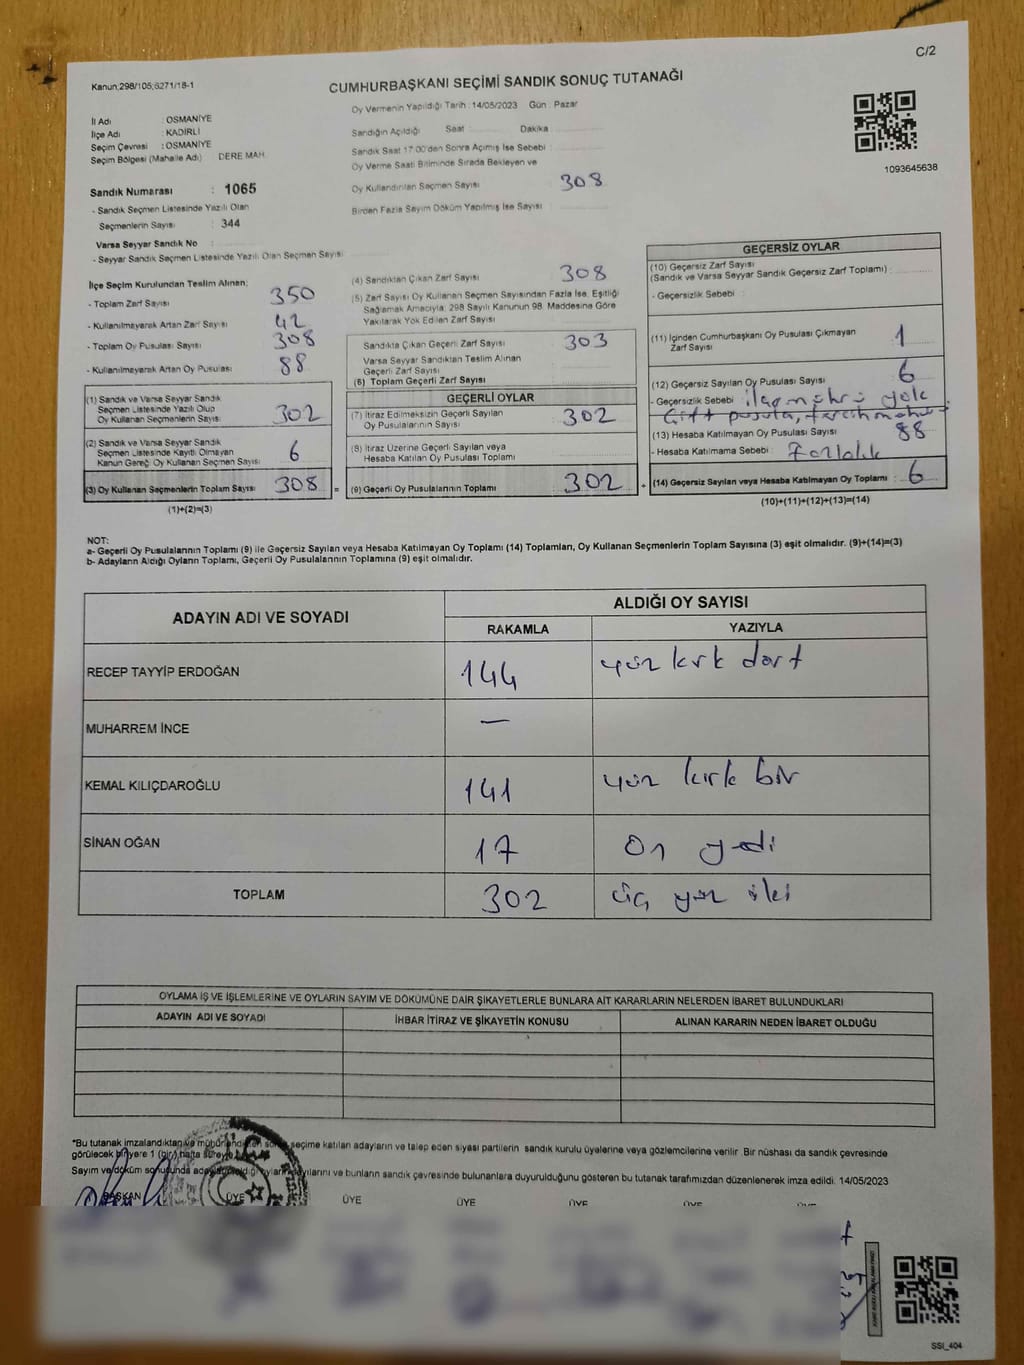 C/2
Kanun;298/105;6271/18-1
CUMHURBAŞKANI SEÇİMİ SANDIK SONUÇ TUTANAĞI
Oy Vermenin Yapıldığı Tarih : 14/05/2023 Gün : Pazar
İl Adı : OSMANİYE
İlçe Adı : KADİRLİ
Seçim Çevresi : OSMANİYE
Seçim Bölgesi (Mahalle Adı) DERE MAH.
Sandığın Açıldığı Saat : Dakika :
Sandık Saat 17:00'den Sonra Açılmış İse Sebebi :
Oy Verme Saati Bitiminde Sırada Bekleyen ve
Oy Kullandırılan Seçmen Sayısı 308
Birden Fazla Sayım Döküm Yapılmış İse Sayısı :
1093645638
Sandık Numarası : 1065
- Sandık Seçmen Listesinde Yazılı Olan
Seçmenlerin Sayısı : 344
Varsa Seyyar Sandık No :
- Seyyar Sandık Seçmen Listesinde Yazılı Olan Seçmen Sayısı :
İlçe Seçim Kurulundan Teslim Alınan;
- Toplam Zarf Sayısı 350
- Kullanılmayarak Artan Zarf Sayısı 42
- Toplam Oy Pusulası Sayısı 308
- Kullanılmayarak Artan Oy Pusulası 88
(1) Sandık ve Varsa Seyyar Sandık
Seçmen Listesinde Yazılı Olup
Oy Kullanan Seçmenlerin Sayısı 302
(2) Sandık ve Varsa Seyyar Sandık
Seçmen Listesinde Kayıtlı Olmayan
Kanun Gereği Oy Kullanan Seçmen Sayısı 6
(3) Oy Kullanan Seçmenlerin Toplam Sayısı 308 =
(1)+(2)=(3)
(4) Sandıktan Çıkan Zarf Sayısı 308
(5) Zarf Sayısı Oy Kullanan Seçmen Sayısından Fazla İse, Eşitliği
Sağlamak Amacıyla; 298 Sayılı Kanunun 98. Maddesine Göre
Yakılarak Yok Edilen Zarf Sayısı
Sandıkta Çıkan Geçerli Zarf Sayısı 303
Varsa Seyyar Sandıktan Teslim Alınan
Geçerli Zarf Sayısı
(6) Toplam Geçerli Zarf Sayısı
GEÇERLİ OYLAR
(7) İtiraz Edilmeksizin Geçerli Sayılan
Oy Pusulalarının Sayısı 302
(8) İtiraz Üzerine Geçerli Sayılan veya
Hesaba Katılan Oy Pusulası Toplamı
(9) Geçerli Oy Pusulalarının Toplamı 302 +
GEÇERSİZ OYLAR
(10) Geçersiz Zarf Sayısı
(Sandık ve Varsa Seyyar Sandık Geçersiz Zarf Toplamı) :
- Geçersizlik Sebebi :
(11) İçinden Cumhurbaşkanı Oy Pusulası Çıkmayan
Zarf Sayısı 1
(12) Geçersiz Sayılan Oy Pusulası Sayısı 6
- Geçersizlik Sebebi ilçe mührü yok
Çift pusula, tercih mührü
(13) Hesaba Katılmayan Oy Pusulası Sayısı 88
- Hesaba Katılmama Sebebi : Fazlalık
(14) Geçersiz Sayılan veya Hesaba Katılmayan Oy Toplamı : 6
(10)+(11)+(12)+(13)=(14)
NOT:
a- Geçerli Oy Pusulalarının Toplamı (9) ile Geçersiz Sayılan veya Hesaba Katılmayan Oy Toplamı (14) Toplamları, Oy Kullanan Seçmenlerin Toplam Sayısına (3) eşit olmalıdır. (9)+(14)=(3)
b- Adayların Aldığı Oyların Toplamı, Geçerli Oy Pusulalarının Toplamına (9) eşit olmalıdır.
ADAYIN ADI VE SOYADI ALDIĞI OY SAYISI
RAKAMLA YAZIYLA
RECEP TAYYİP ERDOĞAN 144 yüz kırk dört
MUHARREM İNCE —
KEMAL KILIÇDAROĞLU 141 yüz kırk bir
SİNAN OĞAN 17 on yedi
TOPLAM 302 üç yüz iki
OYLAMA İŞ VE İŞLEMLERİNE VE OYLARIN SAYIM VE DÖKÜMÜNE DAİR ŞİKAYETLERLE BUNLARA AİT KARARLARIN NELERDEN İBARET BULUNDUKLARI
ADAYIN ADI VE SOYADI İHBAR İTİRAZ VE ŞİKAYETİN KONUSU ALINAN KARARIN NEDEN İBARET OLDUĞU
*Bu tutanak imzalandıktan ve mühürlendikten sonra seçime katılan adayların ve talep eden siyasi partilerin sandık kurulu üyelerine veya gözlemcilerine verilir. Bir nüshası da sandık çevresinde
görülecek bir yere 1 (bir) hafta süreyle
Sayım ve döküm sonucunda bunların sandık çevresinde bulunanlara duyurulduğunu gösteren bu tutanak tarafımızdan düzenlenerek imza edildi. 14/05/2023
BAŞKAN ÜYE ÜYE ÜYE ÜYE ÜYE ÜYE
SSI_404